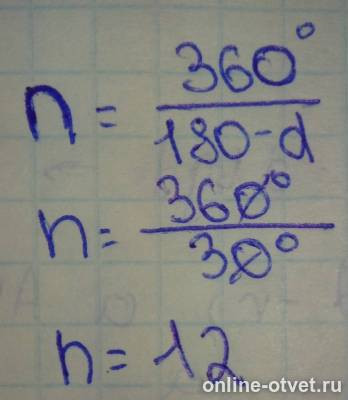 n = 360° / 180-α
n = 360° / 30°
n = 12
online-otvet.ru